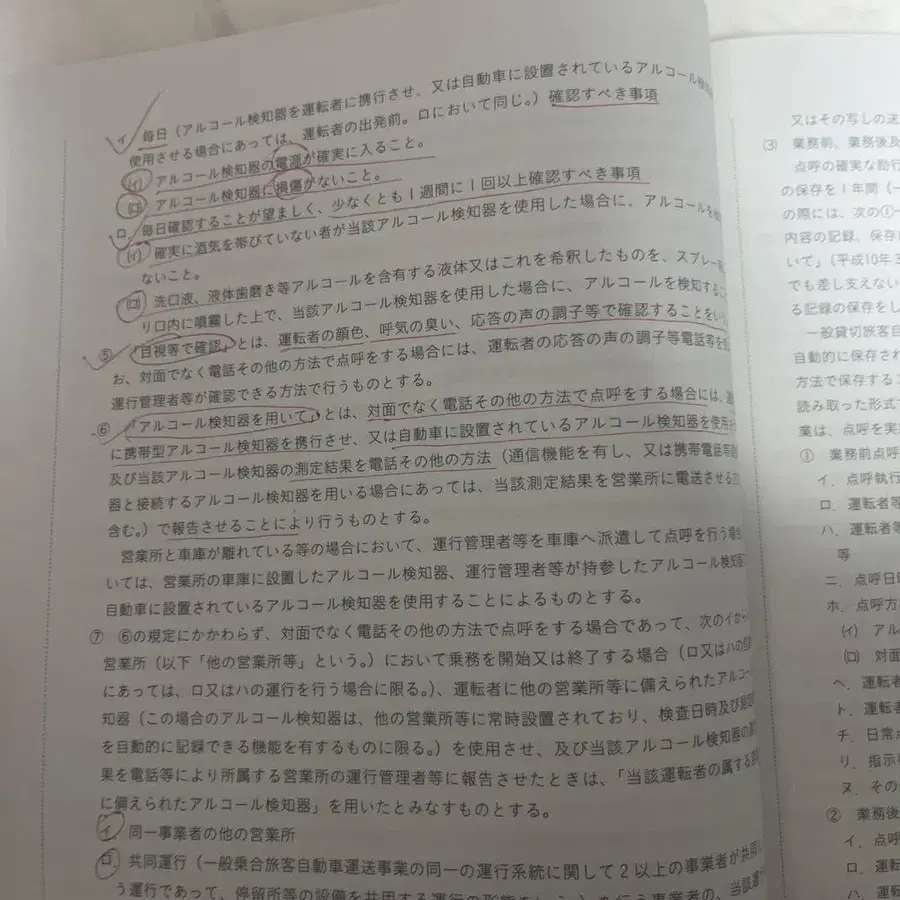 イ 毎日（アルコール検知器を運転者に携行させ、又は自動車に設置されているアルコール検知
使用させる場合にあっては、運転者の出発前。ロにおいて同じ。）確認すべき事項
(イ) アルコール検知器の電源が確実に入ること。
(ロ) アルコール検知器に損傷がないこと。
ロ 毎日確認することが望ましく、少なくとも1週間に1回以上確認すべき事項
(イ) 確実に酒気を帯びていない者が当該アルコール検知器を使用した場合に、アルコールを検
ないこと。
(ロ) 洗口液、液体歯磨き等アルコールを含有する液体又はこれを希釈したものを、スプレー
り口内に噴霧した上で、当該アルコール検知器を使用した場合に、アルコールを検知する
⑤ 「目視等で確認」とは、運転者の顔色、呼気の臭い、応答の声の調子等で確認することをい
お、対面でなく電話その他の方法で点呼をする場合には、運転者の応答の声の調子等電話等を
運行管理者等が確認できる方法で行うものとする。
⑥ 「アルコール検知器を用いて」とは、対面でなく電話その他の方法で点呼をする場合には、
に携帯型アルコール検知器を携行させ、又は自動車に設置されているアルコール検知器を使用
及び当該アルコール検知器の測定結果を電話その他の方法（通信機能を有し、又は携帯電話等
器と接続するアルコール検知器を用いる場合にあっては、当該測定結果を営業所に電送させる
含む。）で報告させることにより行うものとする。
営業所と車庫が離れている等の場合において、運行管理者等を車庫へ派遣して点呼を行う場合
いては、営業所の車庫に設置したアルコール検知器、運行管理者等が持参したアルコール検知
自動車に設置されているアルコール検知器を使用することによるものとする。
⑦ ⑥の規定にかかわらず、対面でなく電話その他の方法で点呼をする場合であって、次のイから
営業所（以下「他の営業所等」という。）において乗務を開始又は終了する場合（ロ又はハの
にあっては、ロ又はハの運行を行う場合に限る。）、運転者に他の営業所等に備えられたアルコー
知器（この場合のアルコール検知器は、他の営業所等に常時設置されており、検査日時及び
を自動的に記録できる機能を有するものに限る。）を使用させ、及び当該アルコール検知器の
果を電話等により所属する営業所の運行管理者等に報告させたときは、「当該運転者の属する
に備えられたアルコール検知器」を用いたとみなすものとする。
イ. 同一事業者の他の営業所
ロ. 共同運行（一般乗合旅客自動車運送事業の同一の運行系統に関して2以上の事業者が共同
う運行であって、停留所等の設備を共用する運行の形態をいう。）を行う事業者の、当該
又はその写しの送
(3) 業務前、業務後及
点呼の確実な励行
の保存を1年間（一
の際には、次の①
内容の記録、保存
いて」（平成10年3
でも差し支えない
る記録の保存をし
一般貸切旅客自
自動的に保存され
方法で保存する
読み取った形式で
業は、点呼を実
① 業務前点呼
イ. 点呼執行
ロ. 運転者等
ハ. 運転者等
等
ニ. 点呼日
ホ. 点呼方
(イ) アル
(ロ) 対面
ヘ. 運転者
ト. 運転者
チ. 日常点
リ. 指示
ヌ. その
② 業務後
イ. 点呼
ロ. 運転
ハ. 運転